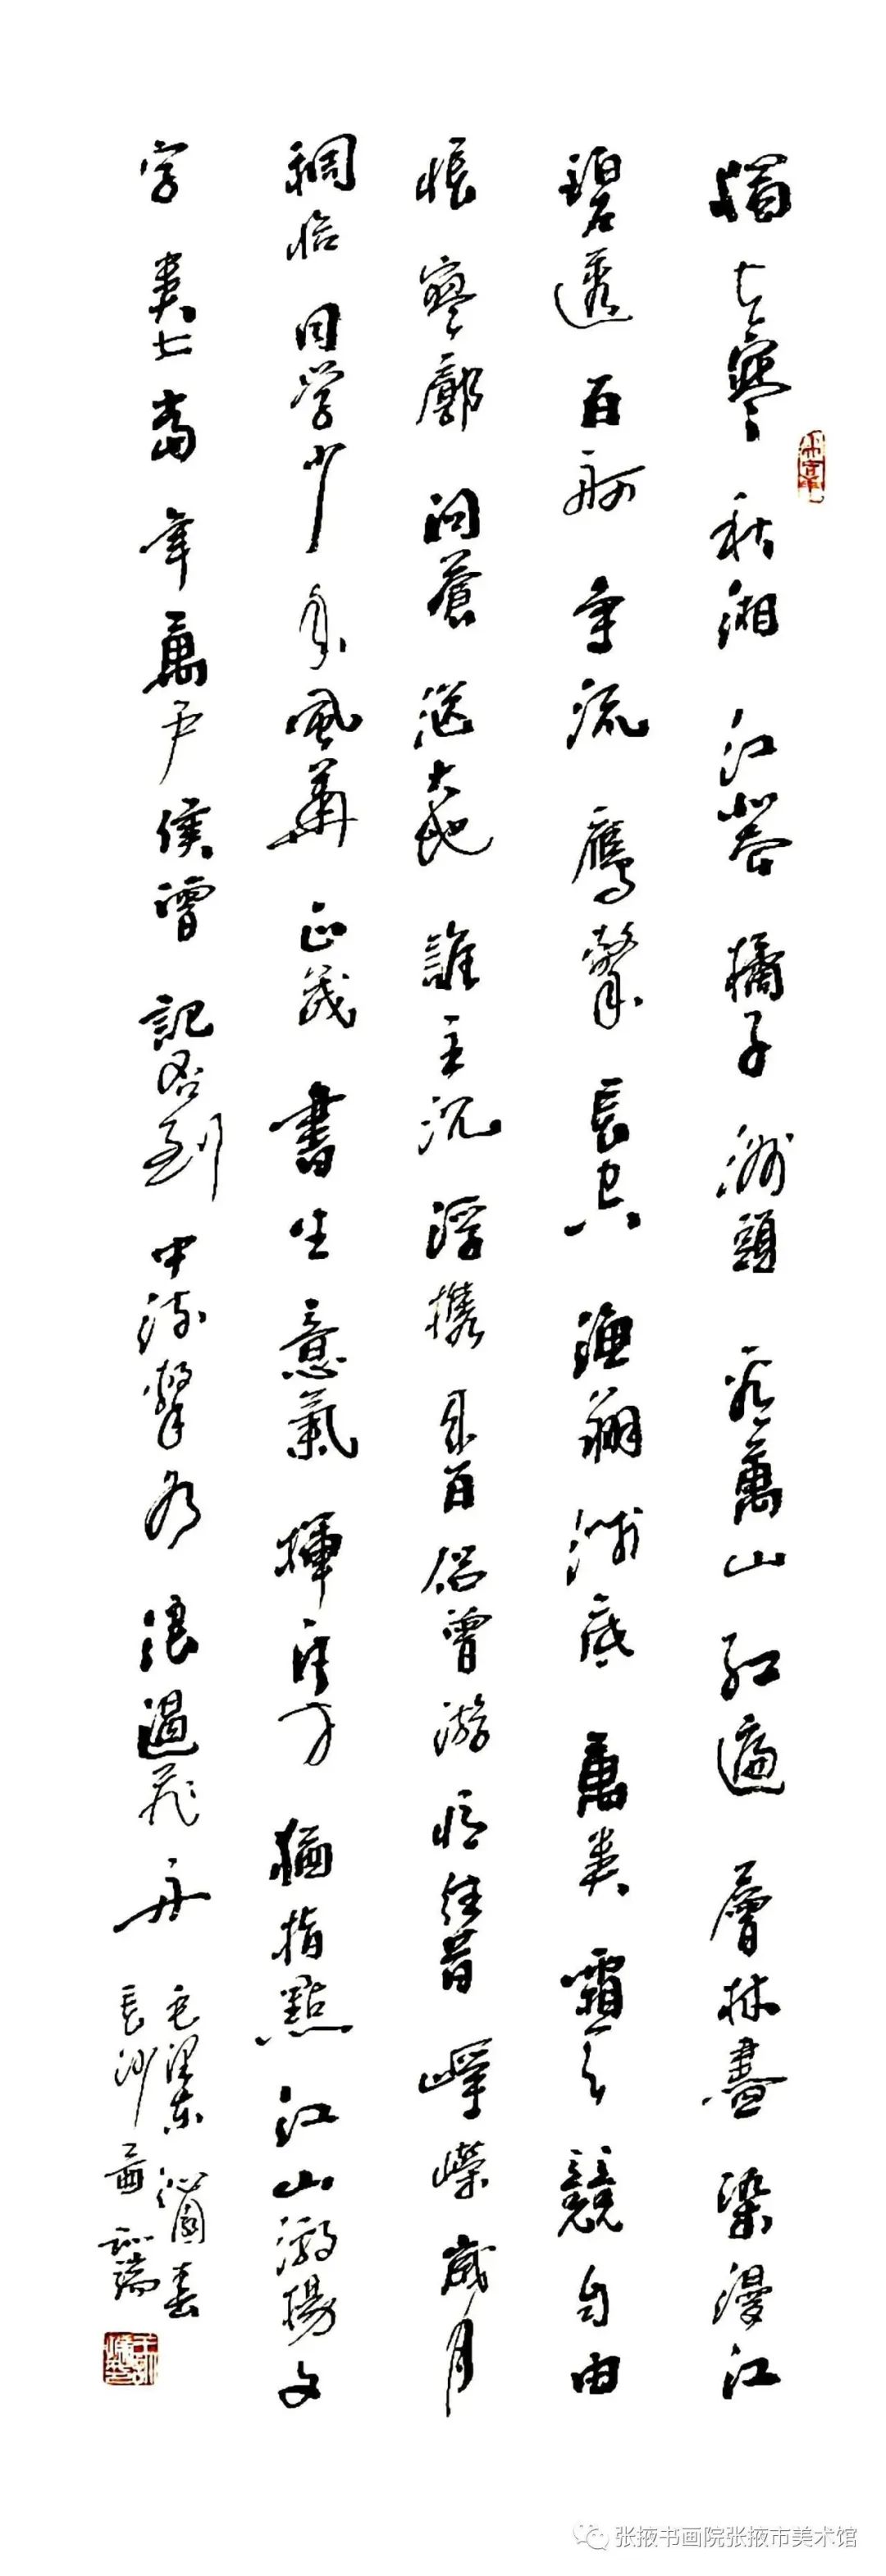 獨立寒秋湘江北去橘子洲頭看萬山紅遍層林盡染漫江
碧透百舸争流鷹擊長空漁翔淺底萬类霜天競自由
悵寥廓問蒼茫大地誰主沉浮携來百侣曾游憶往昔崢嶸歲月
稠恰同学少年風華正茂書生意氣揮斥方猶指點江山激揚文
字糞土當年萬户侯曾記否到中流擊水浪遏飛舟
毛澤東沁園春
長沙
张掖书画院张掖市美术馆